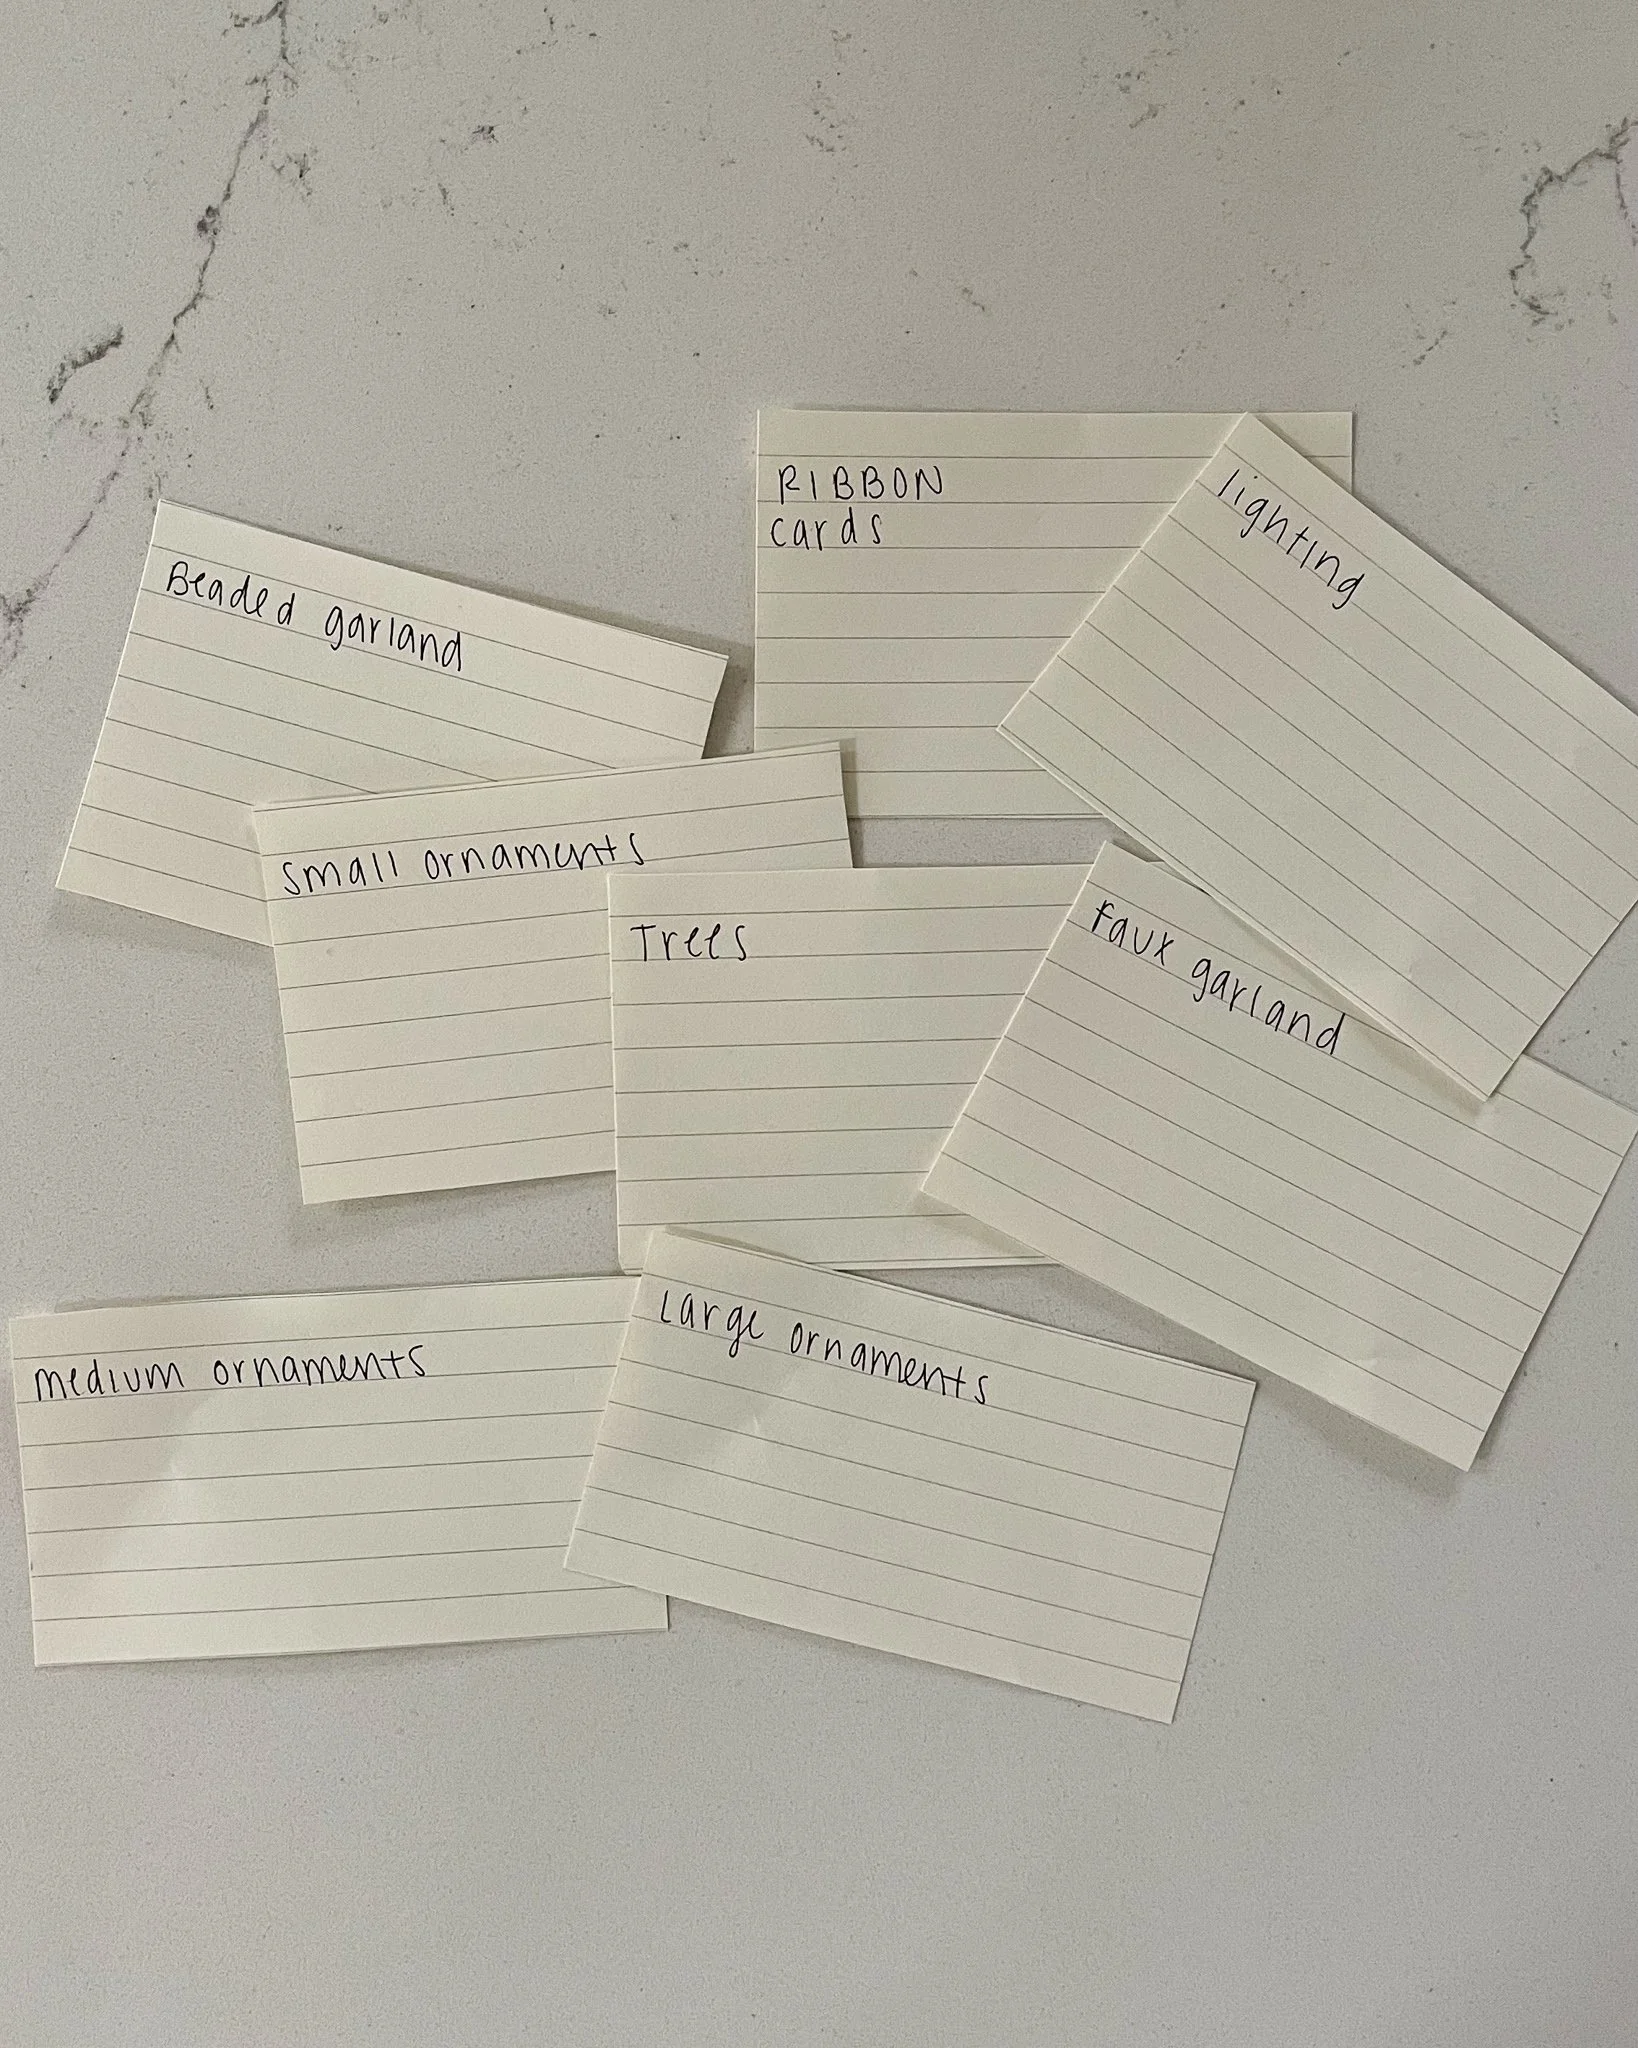 RIBBON
cards
lighting
Beaded garland
small ornaments
Trees
Faux garland
medium ornaments
Large ornaments